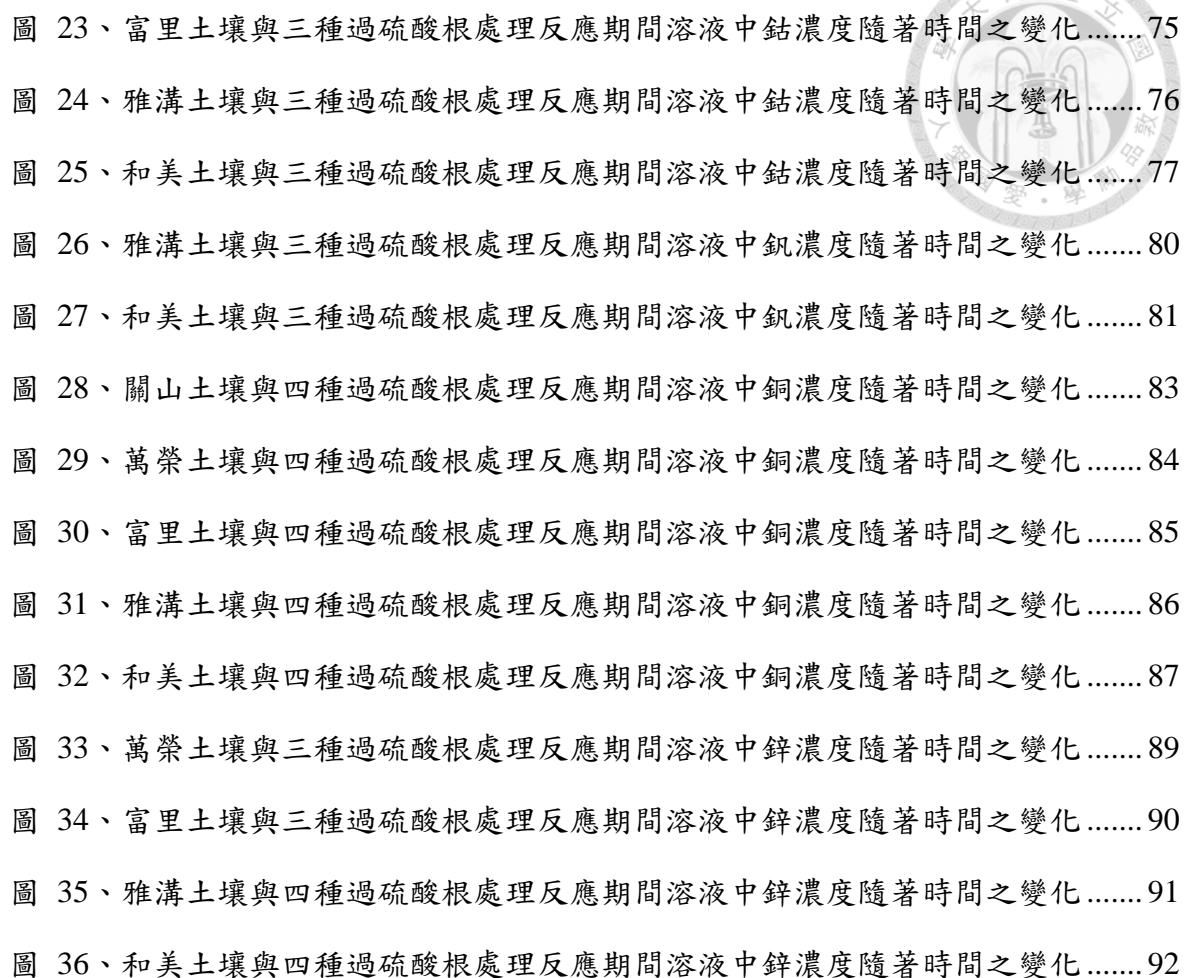 圖 23、富里土壤與三種過硫酸根處理反應期間溶液中鈷濃度隨著時間之變化.......75
圖 24、雅溝土壤與三種過硫酸根處理反應期間溶液中鈷濃度隨著時間之變化.......76
圖 25、和美土壤與三種過硫酸根處理反應期間溶液中鈷濃度隨著時間之變化.......77
圖 26、雅溝土壤與三種過硫酸根處理反應期間溶液中釩濃度隨著時間之變化.......80
圖 27、和美土壤與三種過硫酸根處理反應期間溶液中釩濃度隨著時間之變化.......81
圖 28、關山土壤與四種過硫酸根處理反應期間溶液中銅濃度隨著時間之變化.......83
圖 29、萬榮土壤與四種過硫酸根處理反應期間溶液中銅濃度隨著時間之變化.......84
圖 30、富里土壤與四種過硫酸根處理反應期間溶液中銅濃度隨著時間之變化.......85
圖 31、雅溝土壤與四種過硫酸根處理反應期間溶液中銅濃度隨著時間之變化.......86
圖 32、和美土壤與四種過硫酸根處理反應期間溶液中銅濃度隨著時間之變化.......87
圖 33、萬榮土壤與三種過硫酸根處理反應期間溶液中鋅濃度隨著時間之變化.......89
圖 34、富里土壤與三種過硫酸根處理反應期間溶液中鋅濃度隨著時間之變化.......90
圖 35、雅溝土壤與四種過硫酸根處理反應期間溶液中鋅濃度隨著時間之變化.......91
圖 36、和美土壤與四種過硫酸根處理反應期間溶液中鋅濃度隨著時間之變化.......92